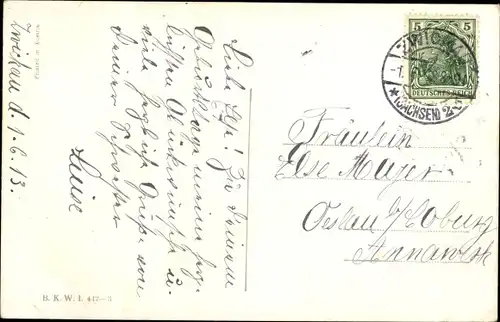 Zwickau d. 1.6.13.
Liebe Else! Zu Deinem
Geburtstage meine herz-
lichsten Glückwünsche u.
viele herzliche Grüße von
Deiner Schwester
Luise
B. K. W. I. 442-3
5 5
DEUTSCHES REICH
ZWICKAU
(SACHSEN)
Fräulein
Else Mayer
Oeslau b/Coburg
Annawerk